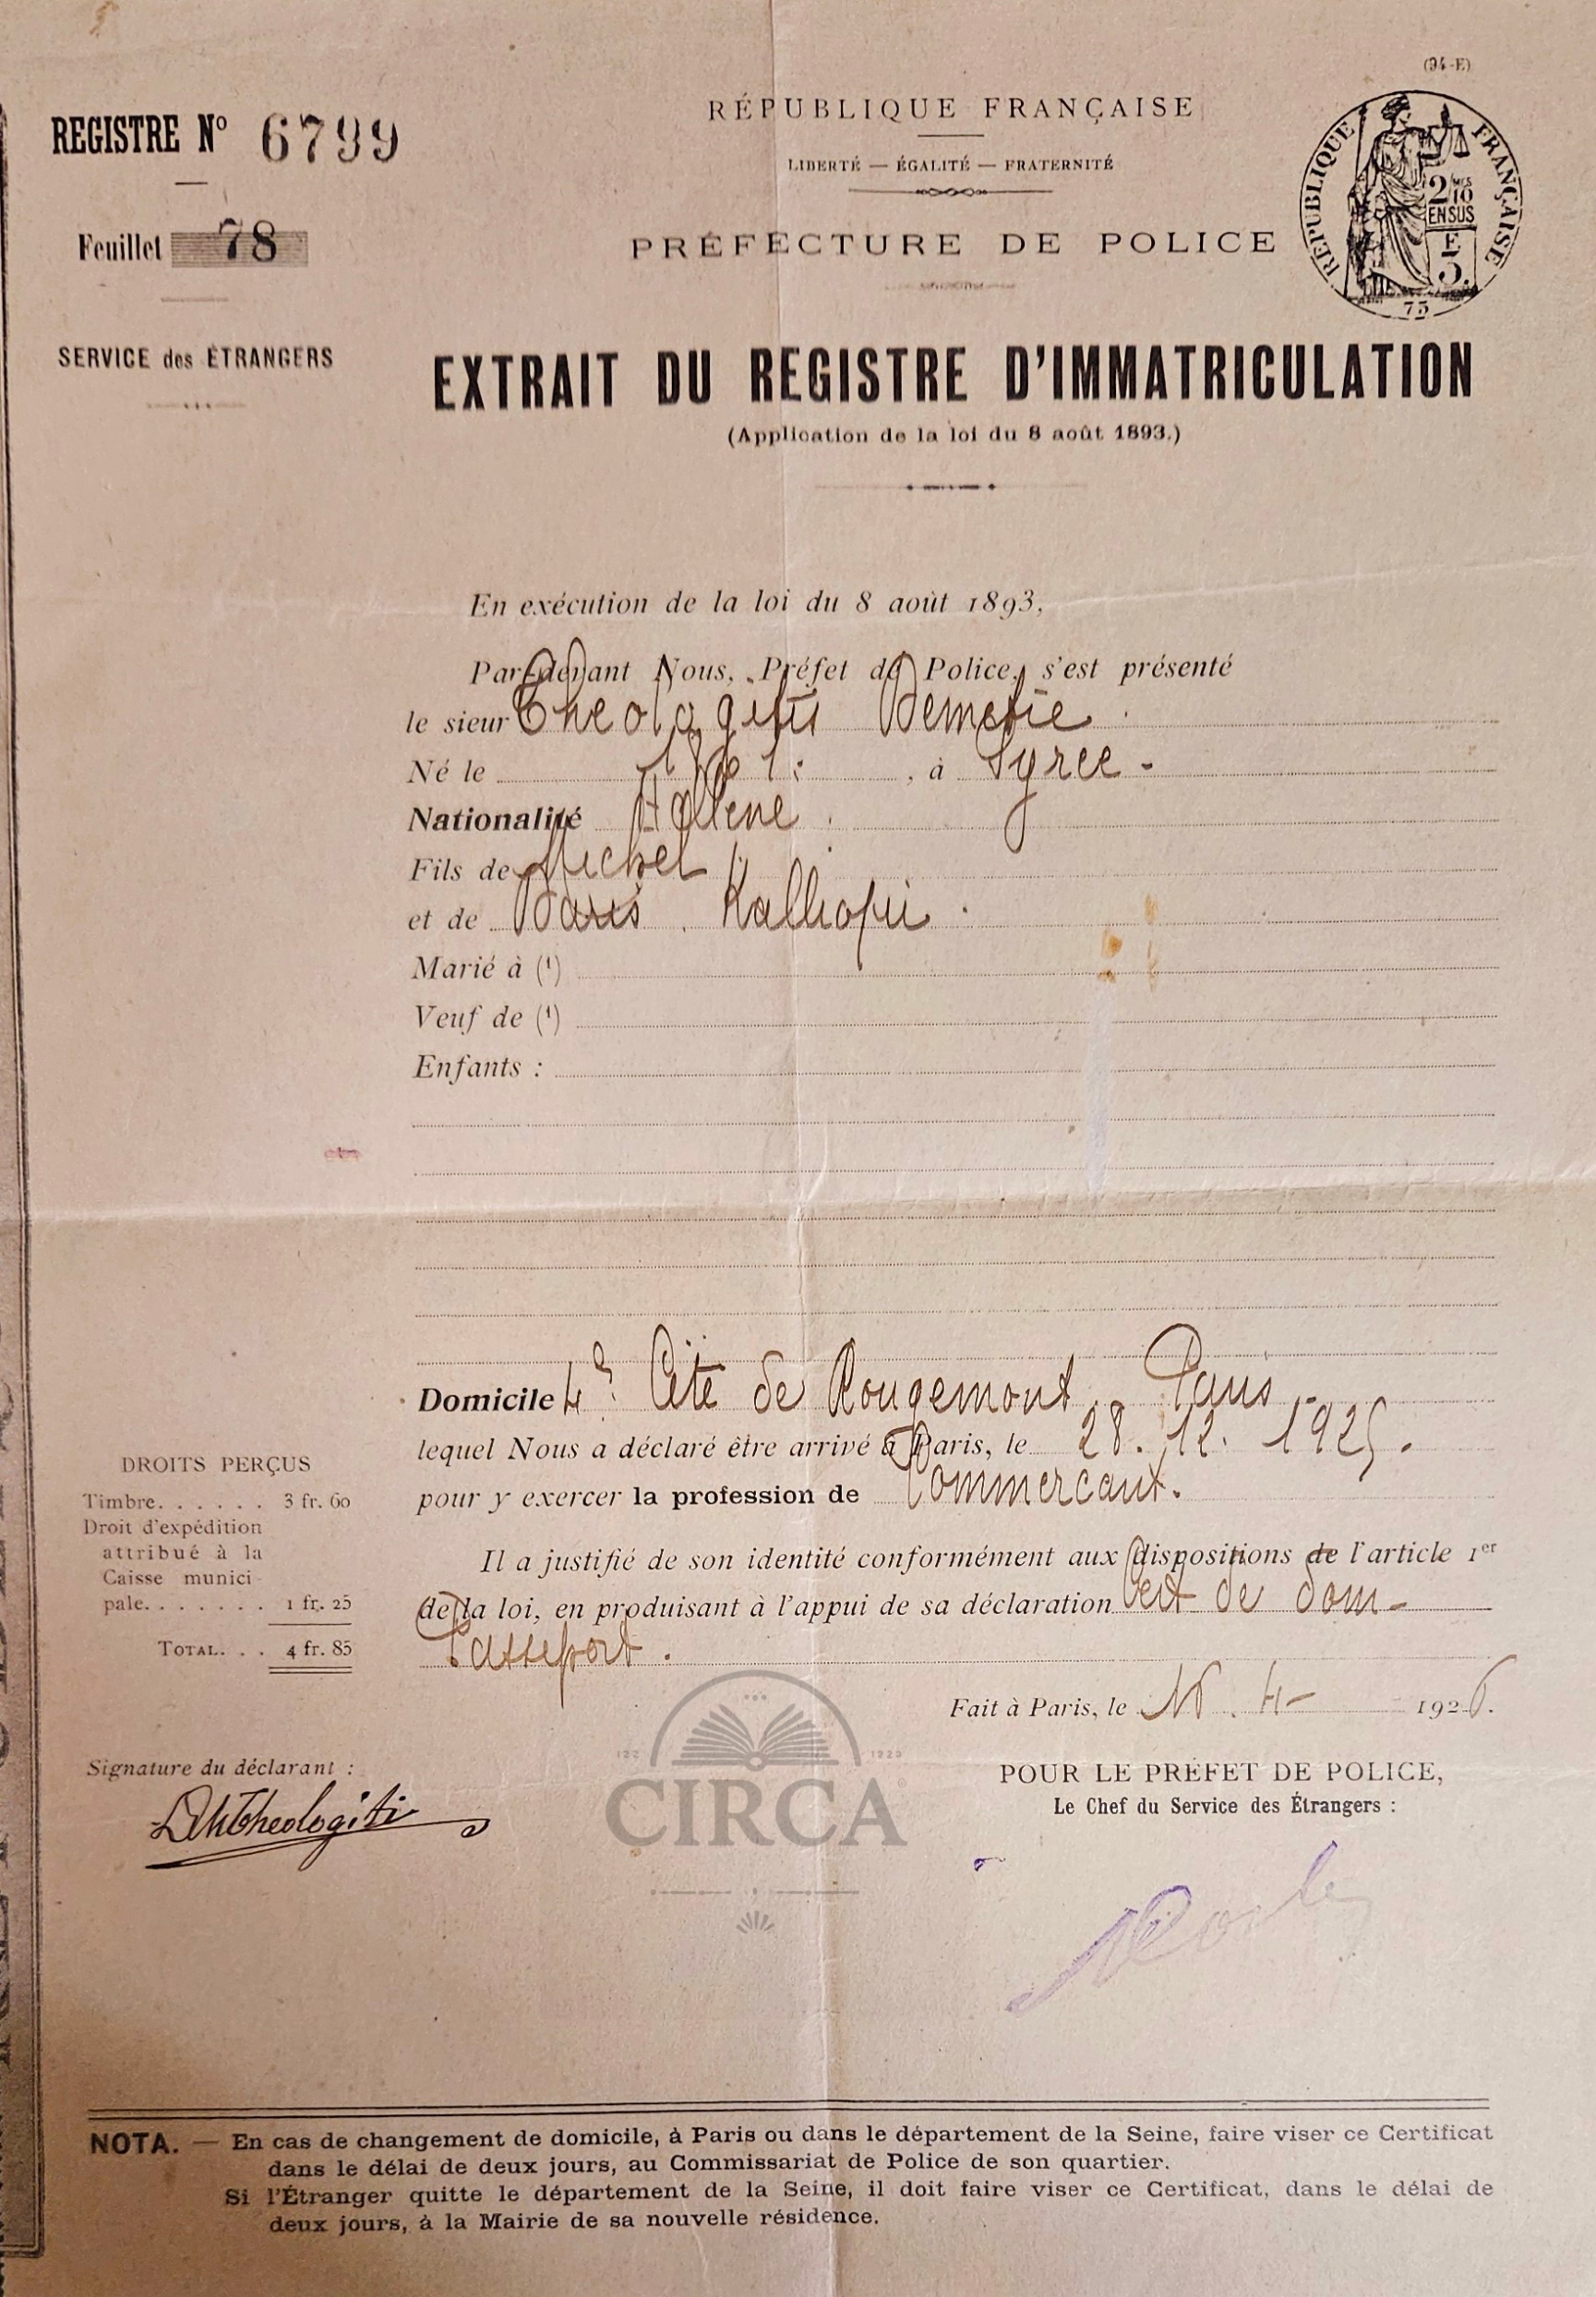 (94-E)
REGISTRE Nº 6799
RÉPUBLIQUE FRANÇAISE
LIBERTÉ — ÉGALITÉ — FRATERNITÉ
Feuillet 78
PRÉFECTURE DE POLICE
RÉPUBLIQUE FRANÇAISE
2 MES 10
EN SUS
75
SERVICE des ÉTRANGERS
EXTRAIT DU REGISTRE D'IMMATRICULATION
(Application de la loi du 8 août 1893.)
En exécution de la loi du 8 août 1893,
Par-devant Nous, Préfet de Police, s'est présenté
le sieur Theologitis
Né le , à Syree -
Nationalité Hellene.
Fils de Michel
et de Kalliopii.
Marié à (1)
Veuf de (1)
Enfants :
Domicile 4 Cité de Rougemont Paris
lequel Nous a déclaré être arrivé à Paris, le 28. 12. 1925.
pour y exercer la profession de Commercant.
Il a justifié de son identité conformément aux dispositions de l'article 1er
de la loi, en produisant à l'appui de sa déclaration Cert de dom-
Passeport.
DROITS PERÇUS
Timbre. . . . . . 3 fr. 60
Droit d'expédition
attribué à la
Caisse munici-
pale. . . . . . . 1 fr. 25
TOTAL. . . 4 fr. 85
Fait à Paris, le 4- 1926.
Signature du déclarant :
DMTheologiti
POUR LE PRÉFET DE POLICE,
Le Chef du Service des Étrangers :
CIRCA
NOTA. — En cas de changement de domicile, à Paris ou dans le département de la Seine, faire viser ce Certificat
dans le délai de deux jours, au Commissariat de Police de son quartier.
Si l'Étranger quitte le département de la Seine, il doit faire viser ce Certificat, dans le délai de
deux jours, à la Mairie de sa nouvelle résidence.